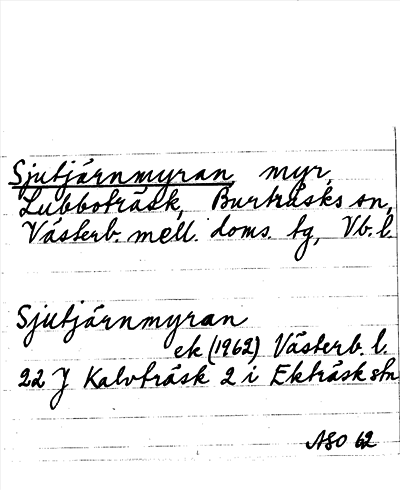 Sjutjärnmyran, myr,
Lubboträsk, Burträsks sn,
Västerb. mell. doms. tg, Vb. l.
Sjutjärnmyran
ek (1962) Västerb. l.
22 J Kalvträsk 2 i Ekträsk stn
ASO 62